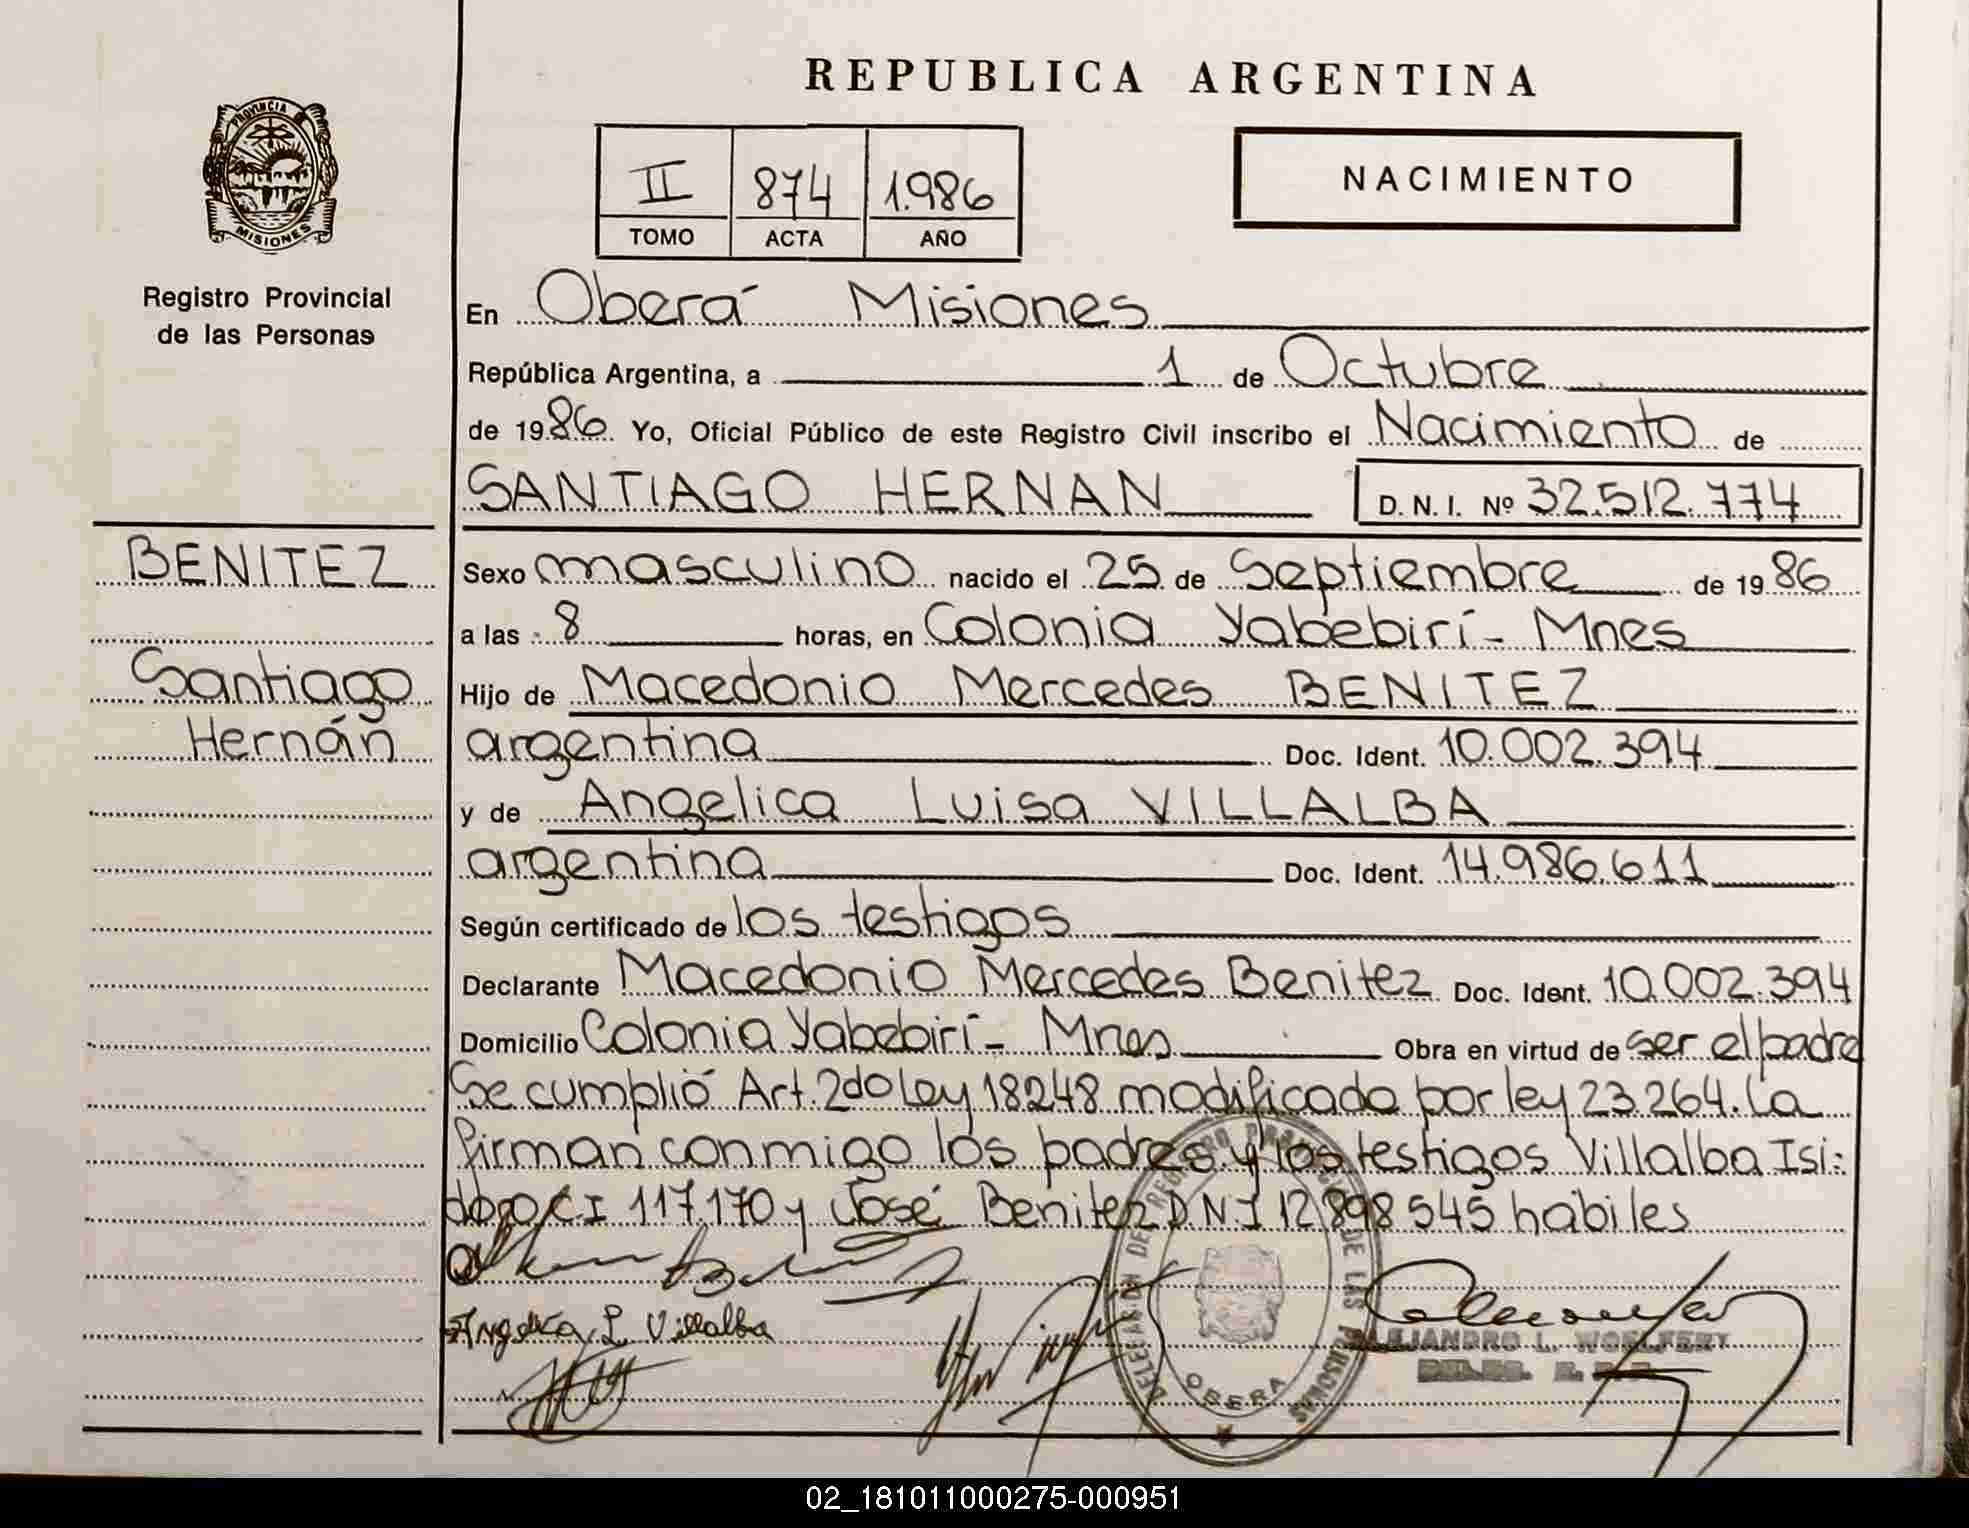 REPUBLICA ARGENTINA
PROVINCIA
MISIONES
Registro Provincial
de las Personas
II 874 1.986
TOMO ACTA AÑO
NACIMIENTO
En Oberá Misiones
República Argentina, a 1 de Octubre
de 1986 Yo, Oficial Público de este Registro Civil inscribo el Nacimiento de
SANTIAGO HERNAN D. N. I. Nº 32.512.774
BENITEZ
Santiago
Hernán
Sexo masculino nacido el 25 de Septiembre de 1986
a las 8 horas, en Colonia Yabebirí - Mnes
Hijo de Macedonio Mercedes BENITEZ
argentina Doc. Ident. 10.002.394
y de Angelica Luisa VILLALBA
argentina Doc. Ident. 14.986.611
Según certificado de los testigos
Declarante Macedonio Mercedes Benitez Doc. Ident. 10.002.394
Domicilio Colonia Yabebirí - Mnes Obra en virtud de ser el padre
Se cumplió Art. 2do Ley 18248 modificado por ley 23.264. La
firman conmigo los padres y los testigos Villalba Isi-
doro C.I 117.170 y José Benitez D N I 12 898 545 hábiles
Angelica L Villalba
DELEGACION DE REGISTRO PROVINCIAL DE LAS PERSONAS
OBERA
ALEJANDRO L. WOELFERT
02_181011000275-000951